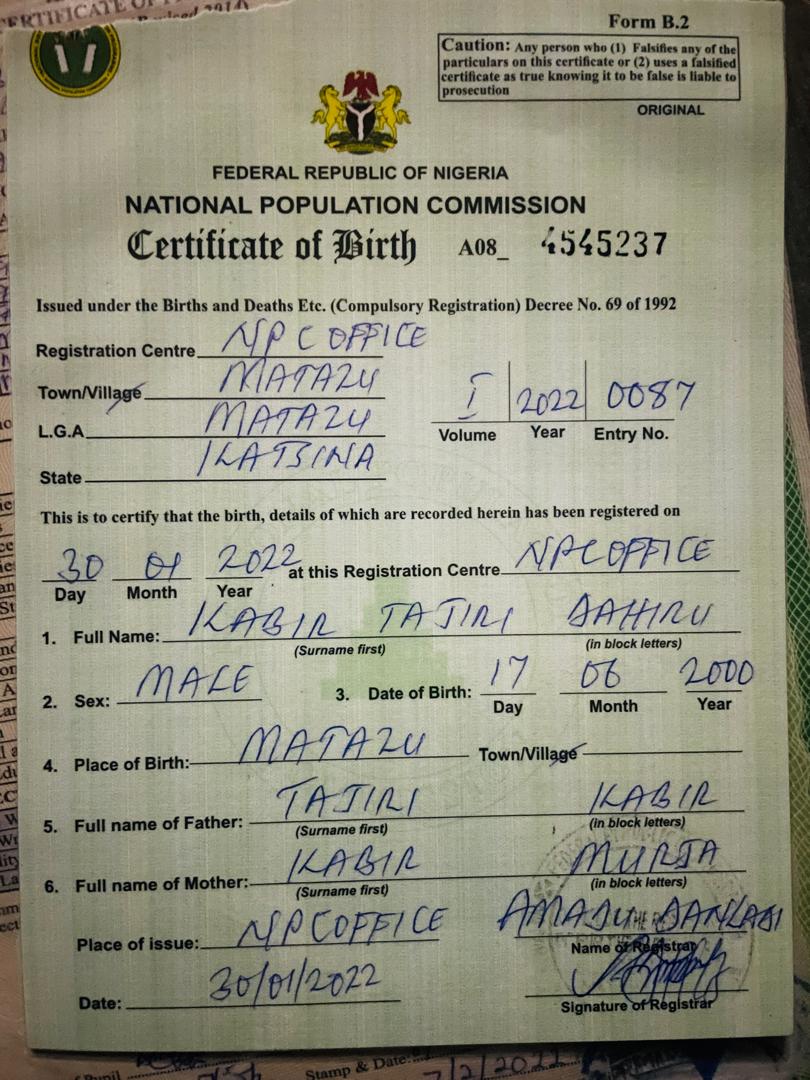 CERTIFICATE OF
Form B.2
Caution: Any person who (1) Falsifies any of the
particulars on this certificate or (2) uses a falsified
certificate as true knowing it to be false is liable to
prosecution
ORIGINAL
FEDERAL REPUBLIC OF NIGERIA
NATIONAL POPULATION COMMISSION
Certificate of Birth A08_ 4545237
Issued under the Births and Deaths Etc. (Compulsory Registration) Decree No. 69 of 1992
Registration Centre NPC OFFICE
Town/Village MATAZU
L.G.A MATAZU
State KATSINA
I 2022 0087
Volume Year Entry No.
This is to certify that the birth, details of which are recorded herein has been registered on
30 01 2022 at this Registration Centre NPC OFFICE
Day Month Year
1. Full Name: KABIR TAJIRI DAHIRU
(Surname first) (in block letters)
2. Sex: MALE 3. Date of Birth: 17 06 2000
Day Month Year
4. Place of Birth: MATAZU Town/Village
5. Full name of Father: TAJIRI KABIR
(Surname first) (in block letters)
6. Full name of Mother: KABIR MURJA
(Surname first) (in block letters)
Place of issue: NPC OFFICE AMADU DANLADI
Name of Registrar
Date: 30/01/2022
Signature of Registrar
Stamp & Date: